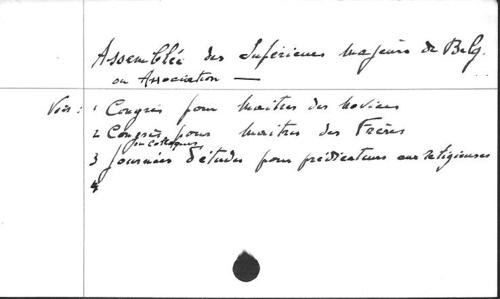 Assemblée des Supérieurs Majeurs de Belg.
ou Association —
Voir : 1 Congrès pour Maîtres des Novices
2 Congrès pour Maîtres des Frères
ou Colloques
3 Journées d'études pour prédicateurs aux religieuses
4